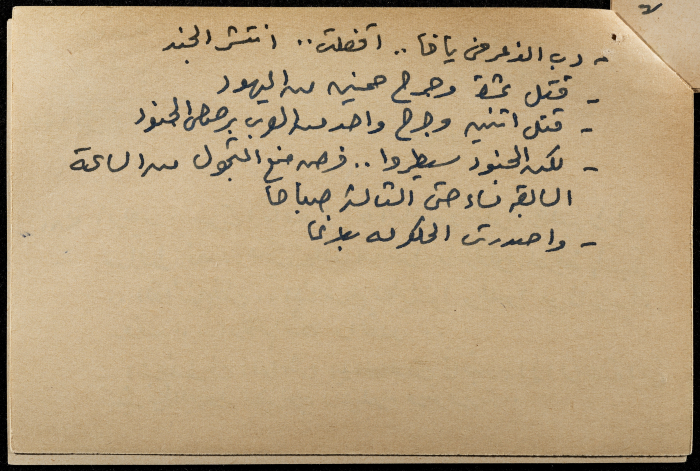 - دب الذعر في يافا .. اقفلت .. انتشر الجند
- قتل عشرة وجرح خمسين من اليهود
- قتل اثنين وجرح واحد من العرب برصاص الجنود
- لكن الجنود سيطروا .. فرض منع التجول من الساعة
السابعة مساء حتى الثالثة صباحا
- واصدرت الحكومة بلاغا